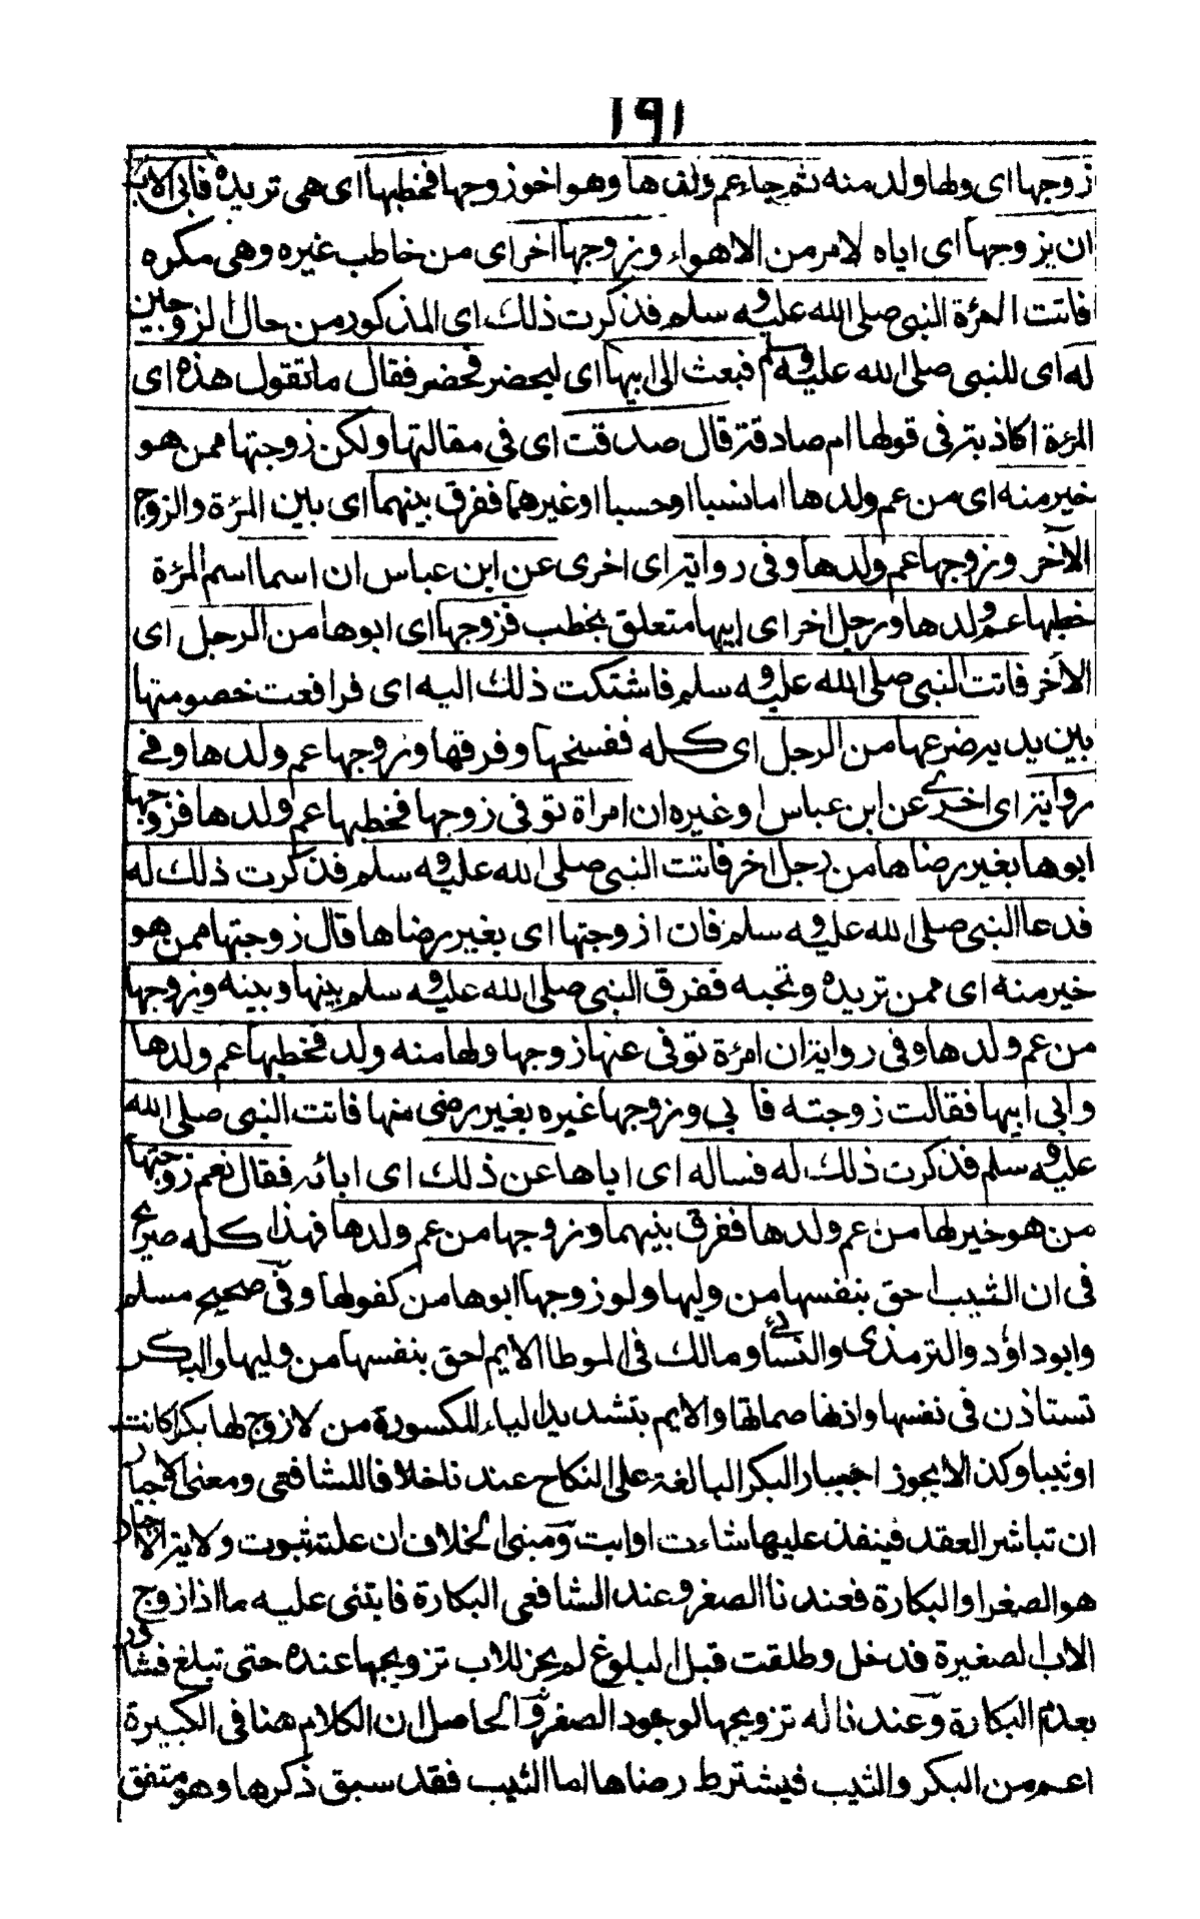 ١٩١
زوجها اى ولها ولد منه ثم جاء عم ولدها وهو اخو زوجها فخطبها اى هى تريده فابى الاب
ان يزوجها اى اياه لامر من الاهواء وزوجها اخر اى من خاطب غيره وهى مكره
فاتت المرءة النبى صلى الله عليه وسلم فذكرت ذلك اى المذكور من حال الزوجين
له اى للنبى صلى الله عليه وسلم فبعث الى ابيها اى ليحضر فحضر فقال ما تقول هذه اى
المرءة اكاذبة فى قولها ام صادقة قال صدقت اى فى مقالتها ولكن زوجتها ممن هو
خير منه اى من عم ولدها اما نسبا او حسبا او غيرهما ففرق بينهما اى بين المرءة والزوج
الآخر وزوجها عم ولدها وفى رواية اى اخرى عن ابن عباس ان اسما اسم المرءة
خطبها عم ولدها ورجل اخر اى ابيها متعلق بخطب فزوجها اى ابوها من الرجل اى
الآخر فاتت النبى صلى الله عليه وسلم فاشتكت ذلك اليه اى فرافعت خصومتها
بين يديه نزعها من الرجل اى كله ففسخها وفرقها وزوجها عم ولدها وفى
رواية اى اخرى عن ابن عباس او غيره ان امراة توفى زوجها فخطبها عم ولدها فزوجها
ابوها بغير رضاها من رجل اخر فاتت النبى صلى الله عليه وسلم فذكرت ذلك له
فدعا النبى صلى الله عليه وسلم فان ازوجتها اى بغير رضاها قال زوجتها ممن هو
خير منه اى ممن تريده وتحبه ففرق النبى صلى الله عليه وسلم بينها وبينه وزوجها
من عم ولدها وفى رواية ان امرءة توفى عنها زوجها ولها منه ولد فخطبها عم ولدها
وابى ابيها فقالت زوجته فا بى وزوجها غيره بغير رضى منها فاتت النبى صلى الله
عليه وسلم فذكرت ذلك له فساله اى اباها عن ذلك اى ابائه فقال نعم زوجتها
من هو خير لها من عم ولدها ففرق بينهما وزوجها من عم ولدها فهذا كله صريح
فى ان الثيب احق بنفسها من وليها ولو زوجها ابوها من كفولها وفى صحيح مسلم
وابوداؤد والترمذى والنسائے ومالك فى الموطا الايم احق بنفسها من وليها والبكر
تستاذن فى نفسها واذنها صماتها والايم بتشديد الياء المكسورة من لا زوج لها بكرا كانت
او ثيبا وكذا لا يجوز اجبار البكر البالغة على النكاح عندنا خلافا للشافعى ومعنى الاجبار
ان تباشر العقد فينفذ عليها شاءت او ابت ومبنى الخلاف ان علة ثبوت ولاية الاجبار
هو الصغر او البكارة فعندنا الصغر وعند الشافعى البكارة فابتنى عليه ما اذا زوج
الاب الصغيرة فدخل وطلقت قبل البلوغ لم يجز للاب تزويجها عنده حتى تبلغ فتشاور
بعدم البكارة وعندنا له تزويجها لوجود الصغر والحاصل ان الكلام هنا فى الكبيرة
اعم من البكر والثيب فيشترط رضاها اما الثيب فقد سبق ذكرها وهو متفق